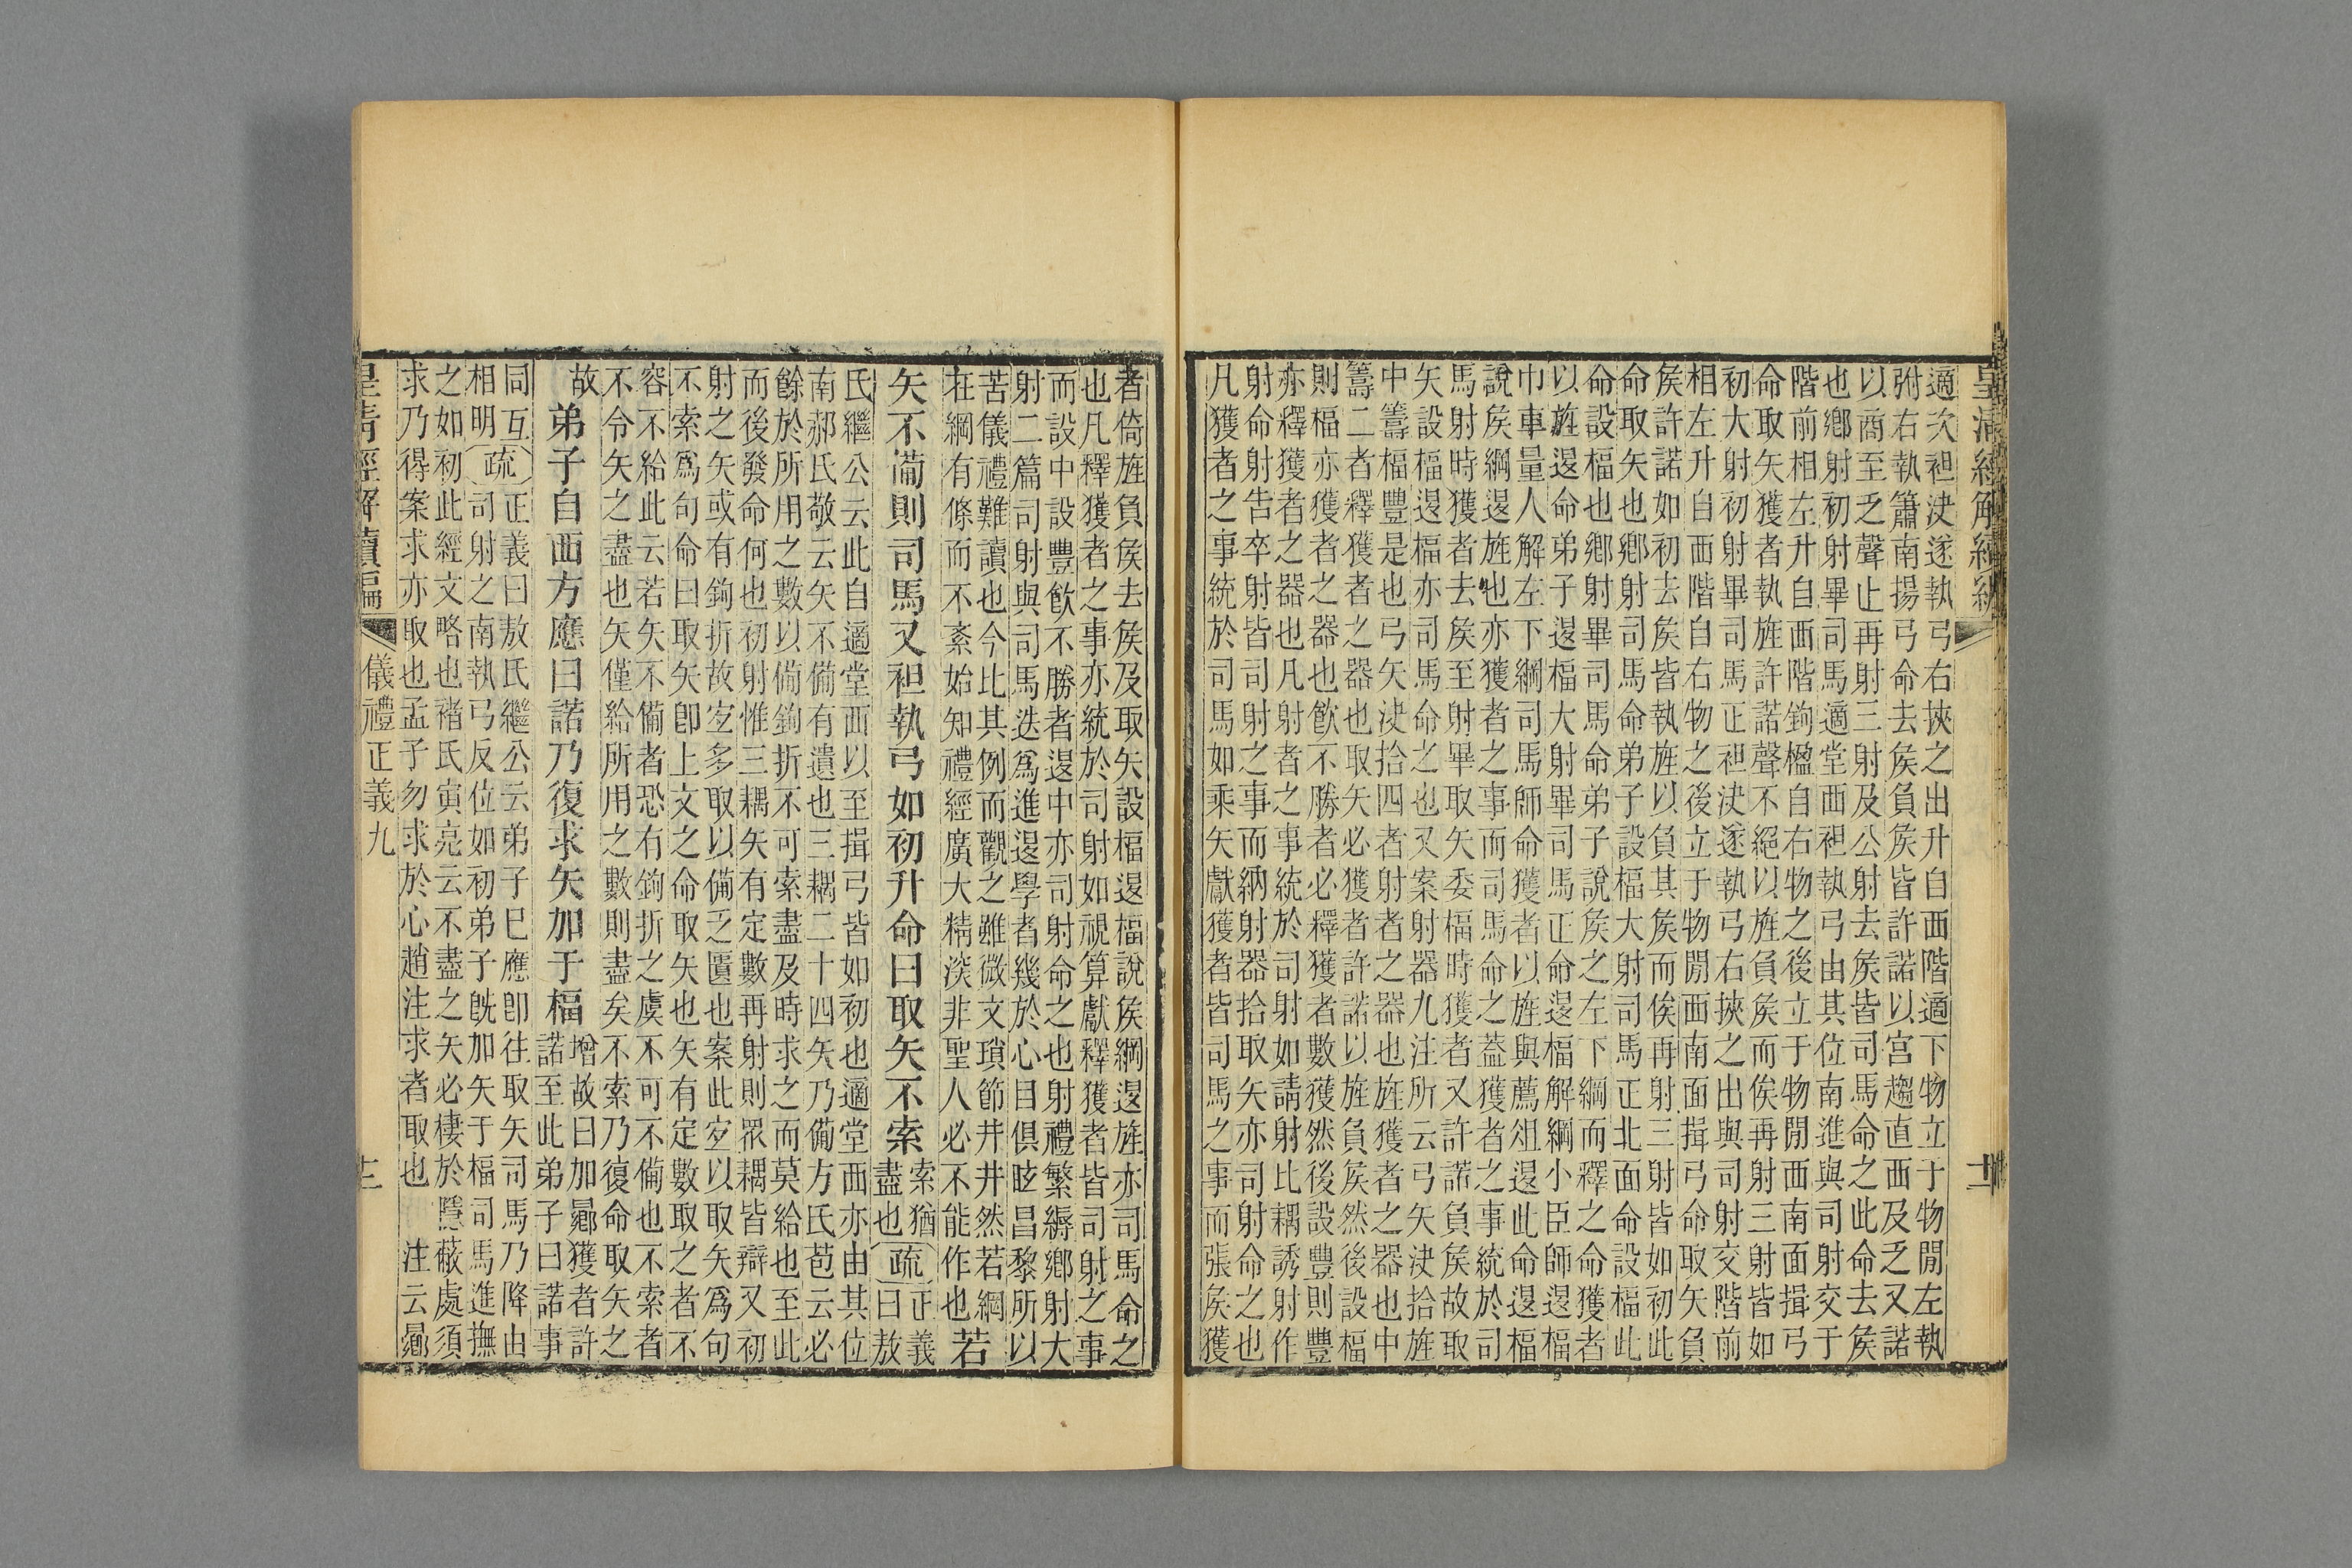 皇清經解續編
適次袒決遂執弓右挾之出升自西階適下物立于物閒左執
弣右執簫南揚弓命去侯負侯皆許諾以宮趨直西及乏又諾
以商至乏聲止再射三射及公射去侯皆司馬命之此命去侯
也鄉射初射畢司馬適堂西袒執弓由其位南進與司射交于
階前相左升自西階鉤楹自右物之後立于物閒西南面揖弓
命取矢獲者執旌許諾聲不絕以旌負侯而俟再射三射皆如
初大射初射畢司馬正袒決遂執弓右挾之出與司射交階前
相左升自西階自右物之後立于物閒西南面揖弓命取矢負
侯許諾如初去侯皆執旌以負其侯而俟再射三射皆如初此
命取矢也鄉射司馬命弟子設楅大射司馬正北面命設楅此
命設楅也鄉射畢司馬命弟子說侯之左下綱而釋之命獲者
以旌退命弟子退楅大射畢司馬正命退楅解綱小臣師退楅
巾車量人解左下綱司馬師命獲者以旌與薦俎退此命退楅
說侯綱退旌也亦獲者之事而司馬命之蓋獲者之事統於司
馬射時獲者去侯至射畢取矢委楅時獲者又許諾負侯故取
矢設楅退楅亦司馬命之也又案射器九注所云弓矢決拾旌
中籌楅豐是也弓矢決拾四者射者之器也旌獲者之器也中
籌二者釋獲者之器也取矢必獲者許諾以旌負侯然後設楅
則楅亦獲者之器也飲不勝者必釋獲者數獲然後設豐則豐
亦釋獲者之器也凡射者之事統於司射如請射比耦誘射作
射命射告卒射皆司射之事而納射器拾取矢亦司射命之也
凡獲者之事統於司馬如乘矢獻獲者皆司馬之事而張侯獲
者倚旌負侯去侯及取矢設楅退楅說侯綱退旌亦司馬命之
也凡釋獲者之事亦統於司射如視算獻釋獲者皆司射之事
而設中設豐飲不勝者退中亦司射命之也射禮繁縟鄉射大
射二篇司射與司馬迭爲進退學者幾於心目俱眩昌黎所以
苦儀禮難讀也今比其例而觀之雖微文瑣節井井然若網
在綱有條而不紊始知禮經廣大精深非聖人必不能作也若
矢不備則司馬又袒執弓如初升命曰取矢不索索猶盡也疏正義曰敖
氏繼公云此自適堂西以至揖弓皆如初也適堂西亦由其位
南郝氏敬云矢不備有遺也三耦二十四矢乃備方氏苞云必
餘於所用之數以備鉤折不可索盡及時求之而莫給也至此
而後發命何也初射惟三耦矢有定數再射則眾耦皆辯又初
射之矢或有鉤折故宜多取以備乏匱也案此宜以取矢爲句
不索爲句命曰取矢卽上文之命取矢也矢有定數取之者不
容不給此云若矢不備者恐有鉤折之虞不可不備也不索者
不令矢之盡也矢僅給所用之數則盡矣不索乃復命取矢之
故弟子自西方應曰諾乃復求矢加于楅增故曰加曏獲者許諾至此弟子曰諾事
同互相明疏正義曰敖氏繼公云弟子已應卽往取矢司馬乃降由
司射之南執弓反位如初弟子旣加矢于楅司馬進撫
之如初此經文略也褚氏寅亮云不盡之矢必棲於隱蔽處須
求乃得案求亦取也孟子勿求於心趙注求者取也 注云曏
皇清經解續編 儀禮正義九